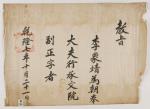 敎旨
李家靖爲朝奉
大夫行承文院
副正字者
乾隆三年十二月二十一日